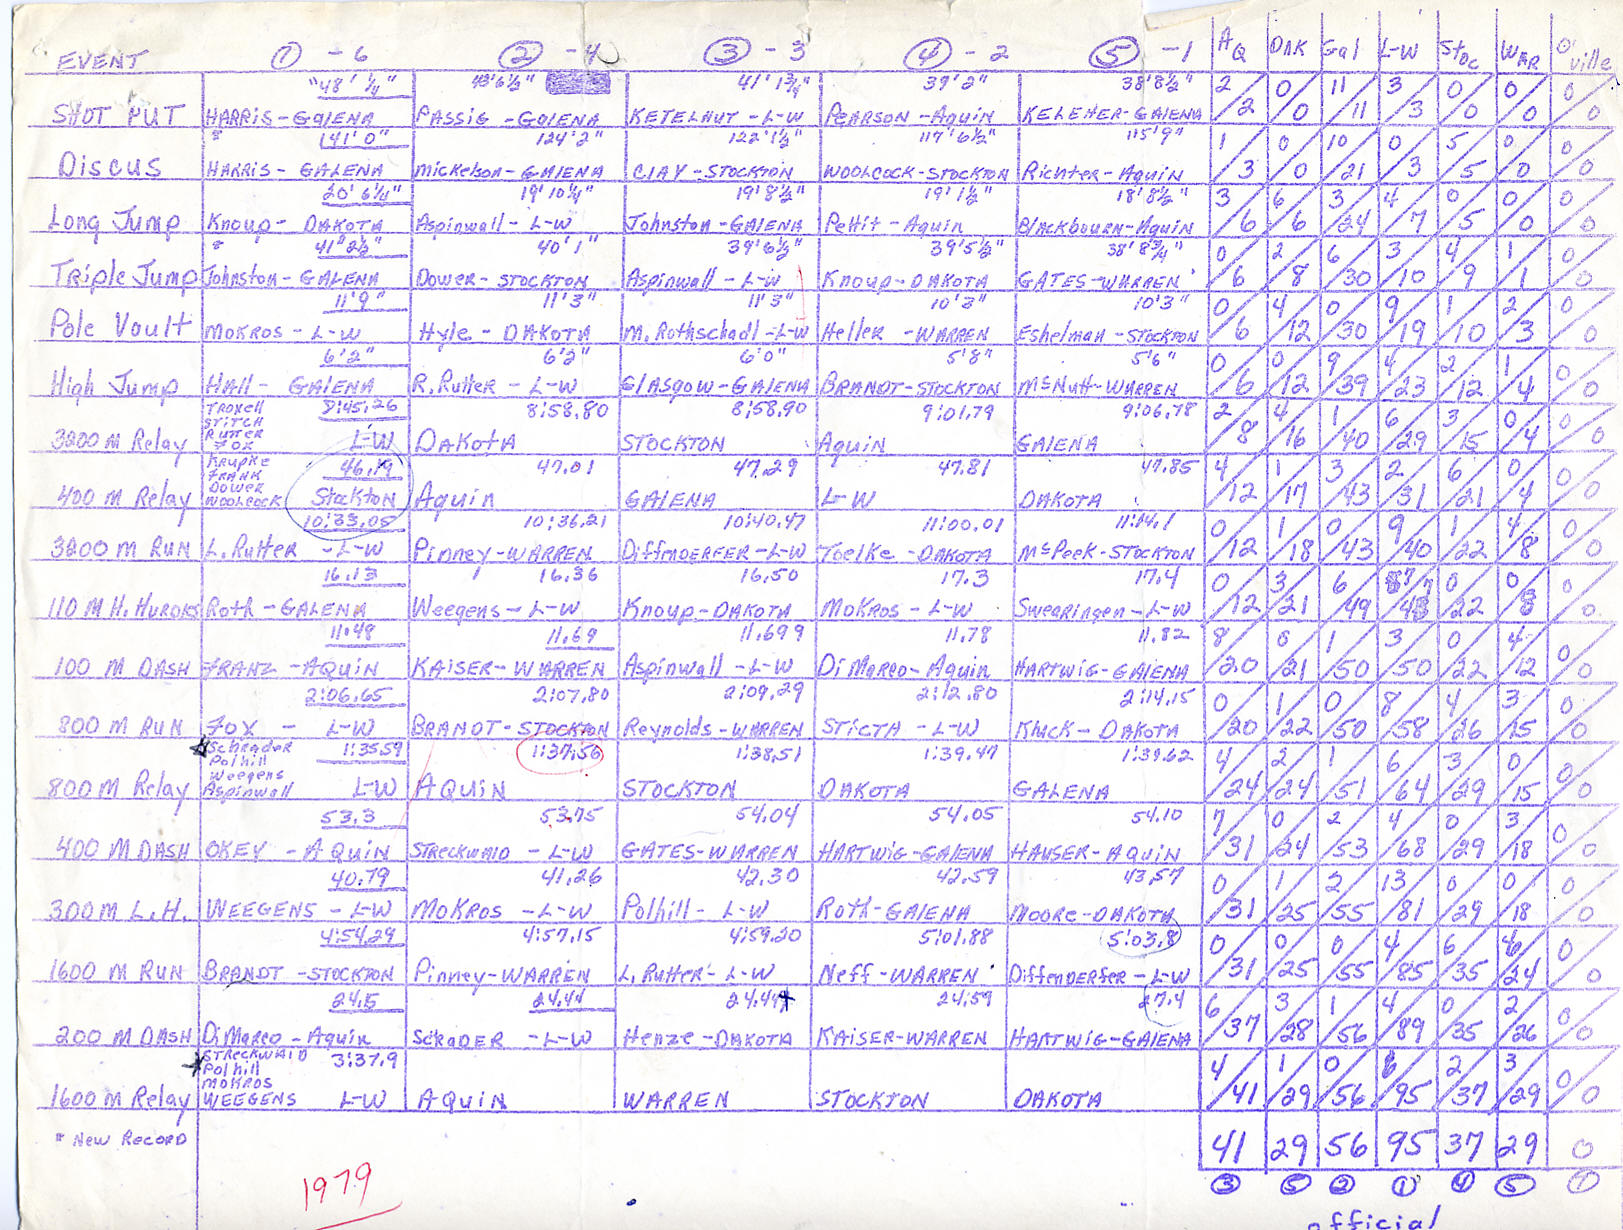 EVENT ① - 6 ② - 4 ③ - 3 ④ - 2 ⑤ - 1 AQ DAK Gal L-W Stoc WAR O'ville
"48' 1/4" 43'6½" 41' 1¾" 39'2" 38'8½" 2 0 11 3 0 0 0
SHOT PUT HARRIS-GALENA PASSIG-GALENA KETELHUT-L-W PEARSON-Aquin KELEHER-GALENA 2 0 11 3 0 0 0
* 141'0" 124'2" 122'1½" 117'6½" 115'9" 1 0 10 0 5 0 0
Discus HARRIS-GALENA Mickelson-GALENA CLAY-STOCKTON WOOLCOCK-STOCKTON Richter-Aquin 3 0 21 3 5 0 0
20'6¼" 19'10¼" 19'8½" 19'1½" 18'8½" 3 6 3 4 0 0 0
Long Jump Knoup-DAKOTA Aspinwall-L-W Johnston-GALENA Pettit-Aquin Blackbourn-Aquin 6 6 24 7 5 0 0
* 41'2½" 40'1" 39'6½" 39'5½" 38'8¾" 0 2 6 3 4 1
Triple Jump Johnston-GALENA Dower-STOCKTON Aspinwall-L-W Knoup-DAKOTA GATES-WARREN 6 8 30 10 9 1 0
11'9" 11'3" 11'3" 10'3" 10'3" 0 4 0 9 1 2 0
Pole Vault MOKROS-L-W Hyle-DAKOTA M. Rothschadl-L-W Heller-WARREN Eshelman-STOCKTON 6 12 30 19 10 3 0
6'2" 6'2" 6'0" 5'8" 5'6" 0 0 9 4 2 1 0
High Jump HALL-GALENA R. Rutter-L-W Glasgow-GALENA BRANDT-STOCKTON McNutt-WARREN 6 12 39 23 12 4 0
TROXELL 8:45.26 8:58.80 8:58.90 9:01.79 9:06.78 2 4 1 6 3 0 0
STITCH
RUTTER
3200 m Relay FOX L-W DAKOTA STOCKTON Aquin GALENA 8 16 40 29 15 4 0
KRUPKE 46.19 47.01 47.29 47.81 47.85 4 1 3 2 6 0 0
FRANK
DOWER
400 m Relay WOOLCOCK Stockton Aquin GALENA L-W DAKOTA 12 17 43 31 21 4 0
10:33.05 10:36.21 10:40.47 11:00.01 11:14.1 0 1 0 9 1 4 0
3200 m RUN L. Rutter-L-W Pinney-WARREN Diffenderfer-L-W Toelke-DAKOTA McPeek-STOCKTON 12 18 43 40 22 8 0
16.13 16.36 16.50 17.3 17.4 0 3 6 7 0 0 0
110 M H. HURDLES Roth-GALENA Weegens-L-W Knoup-DAKOTA MOKROS-L-W Swearingen-L-W 12 21 49 22 8 0
11.48 11.69 11.699 11.78 11.82 8 0 1 3 0 4 0
100 M DASH FRANZ-AQUIN KAISER-WARREN Aspinwall-L-W DiMarco-Aquin HARTWIG-GALENA 20 21 50 50 22 12 0
2:06.65 2:07.80 2:09.29 2:12.80 2:14.15 0 1 0 8 4 3 0
800 M RUN FOX - L-W BRANDT-STOCKTON Reynolds-WARREN STICTA-L-W Kluck-DAKOTA 20 22 50 58 26 15 0
Schrader 1:35.59 1:37.56 1:38.51 1:39.47 1:39.62 4 2 1 6 3 0 0
Polhill
Weegens
800 M Relay Aspinwall L-W AQUIN STOCKTON DAKOTA GALENA 24 24 51 64 29 15 0
53.3 53.75 54.04 54.05 54.10 7 0 2 4 0 3 0
400 M DASH OKEY-AQUIN STRECKWALD-L-W GATES-WARREN HARTWIG-GALENA HAUSER-AQUIN 31 24 53 68 29 18 0
40.79 41.26 42.30 42.59 43.57 0 1 2 13 0 0 0
300 M L.H. WEEGENS-L-W MOKROS-L-W Polhill-L-W Roth-GALENA MOORE-DAKOTA 31 25 55 81 29 18 0
4:54.29 4:57.15 4:59.20 5:01.88 5:03.8 0 0 0 4 6 6 0
1600 M RUN BRANDT-STOCKTON Pinney-WARREN L. Rutter-L-W Neff-WARREN Diffenderfer-L-W 31 25 55 85 35 24 0
24.5 24.44 24.59 27.4 6 3 1 4 0 2 0
200 M DASH DiMarco-Aquin SCHRADER-L-W Henze-DAKOTA KAISER-WARREN HARTWIG-GALENA 37 28 56 89 35 26 0
STRECKWALD 3:37.9 4 1 0 6 2 3 0
Polhill
MOKROS
1600 m Relay WEEGENS L-W AQUIN WARREN STOCKTON DAKOTA 41 29 56 95 37 29 0
* NEW RECORD 41 29 56 95 37 29 0
1979 ③ ⑤ ② ① ④ ⑤ ⑦
official